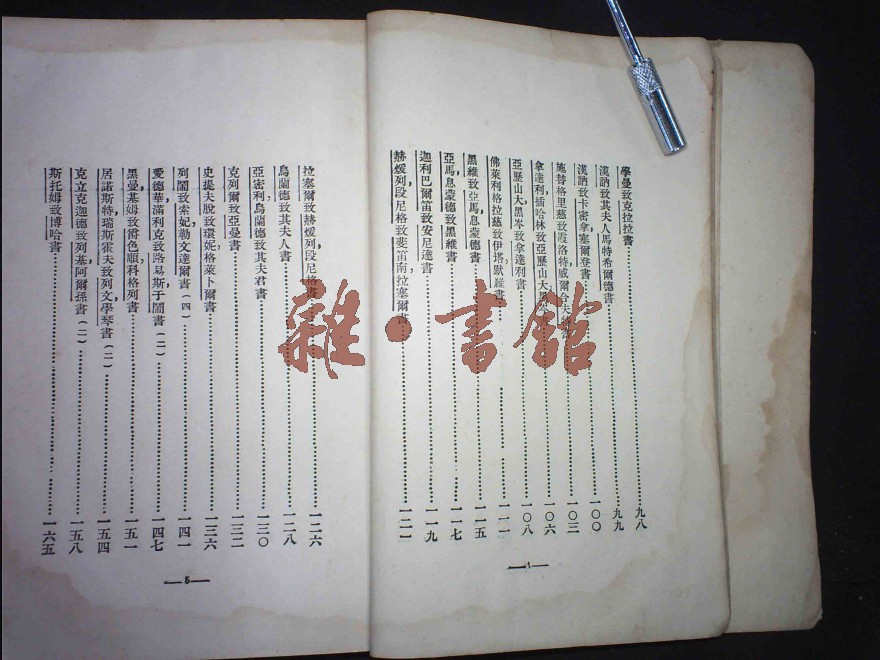 學曼致克拉拉書……九八
漢訥致其夫人馬特希爾德書……九九
漢訥致卡密拿,塞爾登書……一〇〇
施替格里慈致霞洛特,威爾合夫……一〇三
拿達利,插哈林致亞歷山大,黑岑……一〇六
亞歷山大,黑岑致拿達利書……一〇八
佛萊利格拉慈致伊塔,默羅書……一一一
黑維致亞馬,息蒙德書……一一五
亞馬,息蒙德致黑維書……一一七
迦利巴爾笛致安尼達書……一一九
赫嫒列,段尼格致斐笛南,拉塞爾書……一二一
—4—
拉塞爾致赫嫒列,段尼格書……一二六
烏蘭德致其夫人書……一二八
亞密利,烏蘭德致其夫君書……一三〇
克列爾致亞曼書……一三二
史提夫脫致環妮,格萊卜爾書……一三六
列闍致索妃,勒文達爾書(四)……一四一
愛德華,滿利克致路易斯,于闍書(二)……一四七
黑曼,基姆致爵色順,科格列書……一五一
居諾,斯特瑞斯霍夫致列文,學琴書(二)……一五四
克立克迦德致列基,阿爾孫書(二)……一五八
斯托姆致博哈書……一六五
—5—
雜·書館